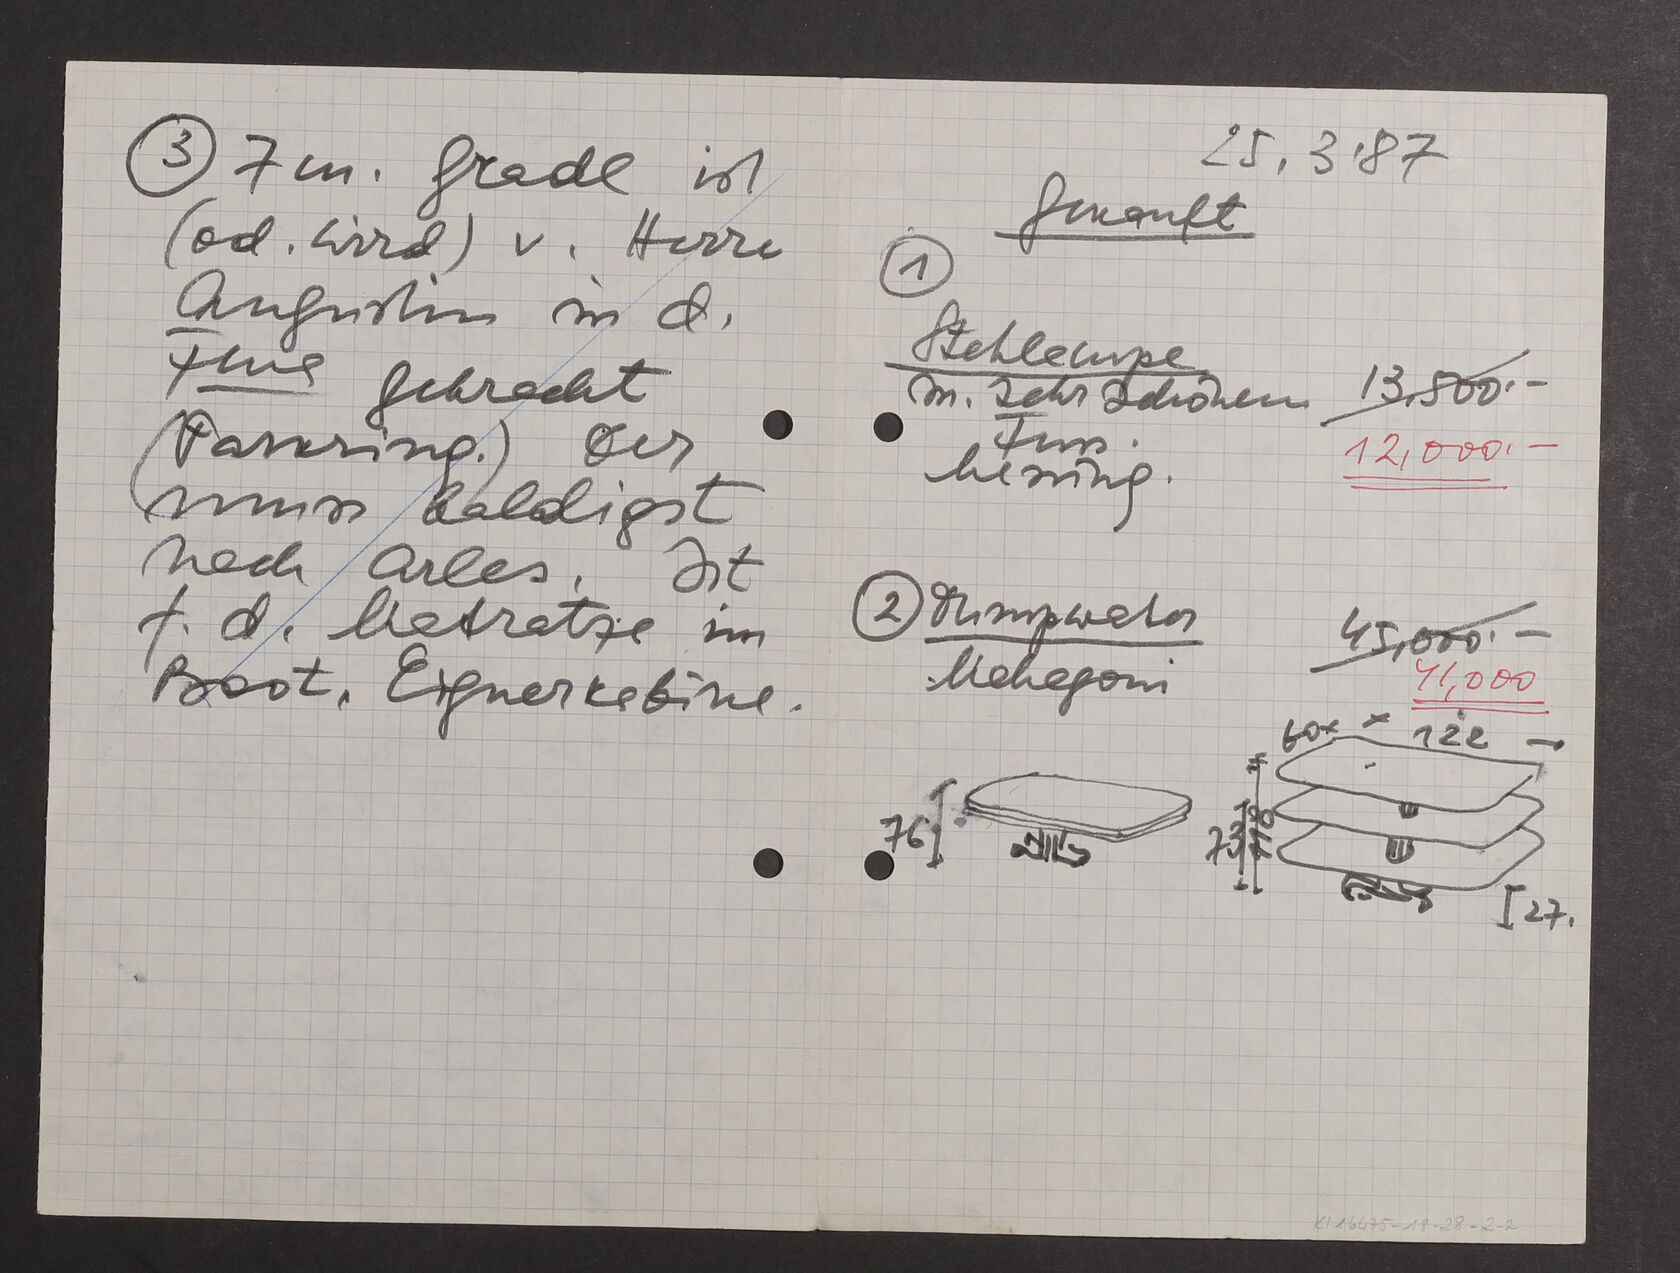 ③ 7 m. Gradl ist
(od. wird) v. Herrn
Augustin in d.
gebracht
(Parkring.) Der
muss baldigst
nach Arles. Ist
f. d. Matratze im
Boot, Eignerkabine.
25.3.87
Gekauft
①
Stehlampe
m. sehr schönem 13,500.-
Fuss. 12,000.-
Messing.
② 45,000.-
Mahagoni 41,000
60 x 122
76
73
78
27.
KI 16475-18-28-2-2